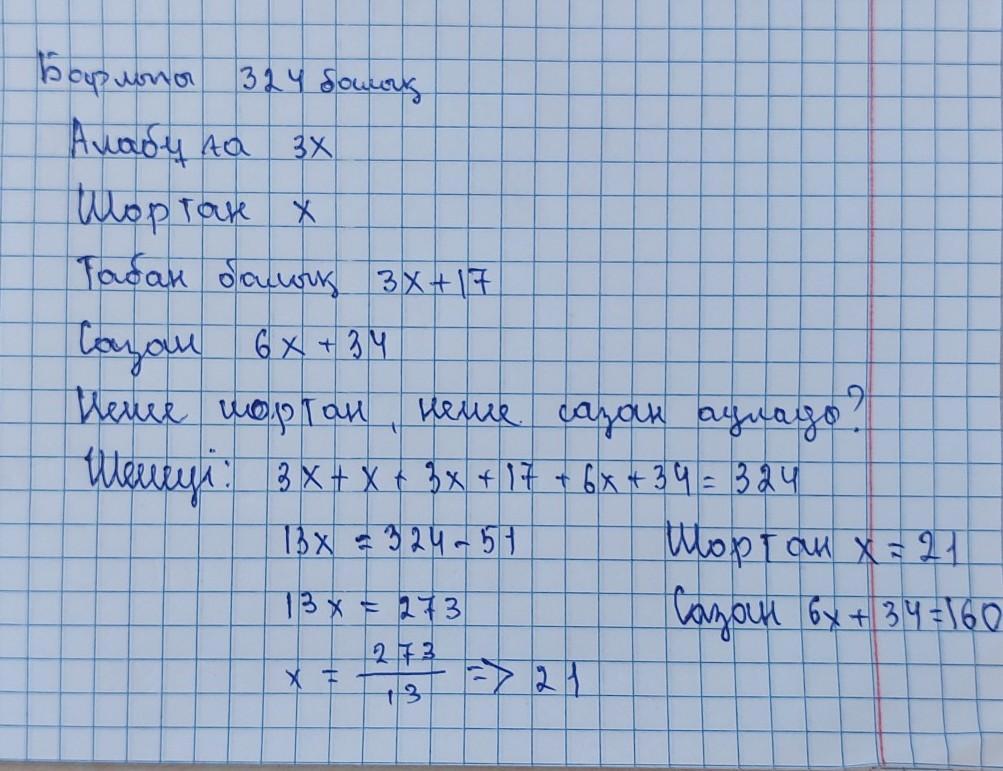 Барлығы 324 балық
Алабұға 3x
Шортан x
Табан балық 3x+17
Сазан 6x+34
Неше шортан, неше сазан аулады?
Шешуі: 3x+x+3x+17+6x+34=324
13x=324-51 Шортан x=21
13x=273 Сазан 6x+34=160
x=273/13 => 21